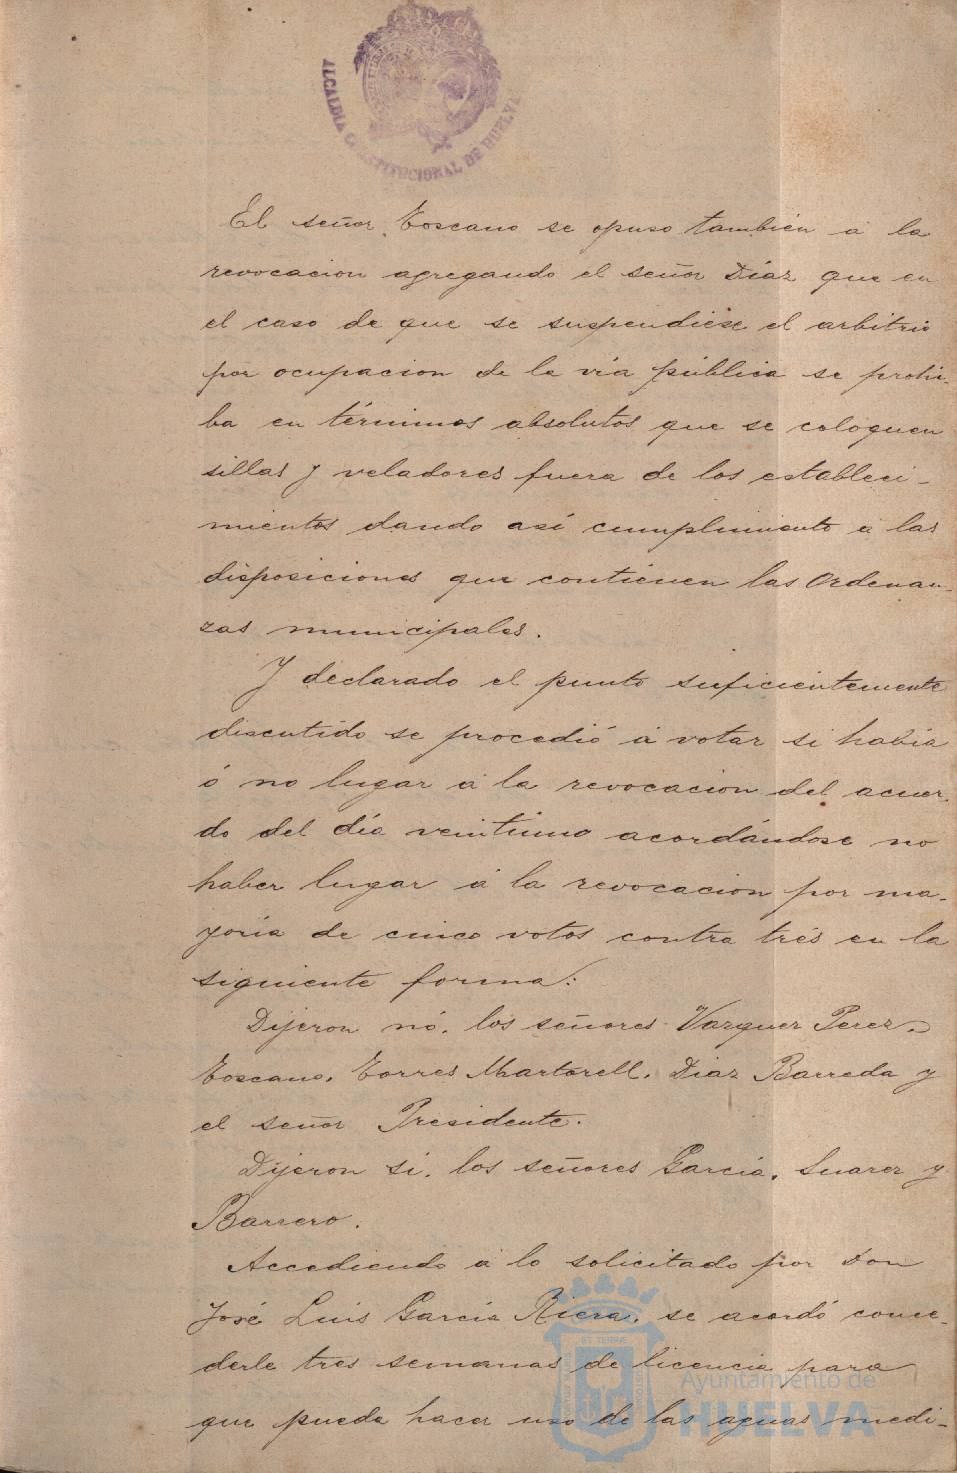 ALCALDIA CONSTITUCIONAL DE HUELVA
El señor Toscano se opuso también á la
revocacion agregando el señor Díaz que en
el caso de que se suspendiese el arbitrio
por ocupacion de la vía pública se prohi-
ba en términos absolutos que se coloquen
sillas y veladores fuera de los estableci-
mientos dando así cumplimiento á las
disposiciones que contienen las Ordenan-
zas municipales.
Y declarado el punto suficientemente
discutido se procedió á votar si había
ó no lugar á la revocacion del acuer-
do del día veintiuno acordándose no
haber lugar á la revocacion por ma-
yoría de cinco votos contra trés en la
siguiente forma:
Dijeron nó, los señores Vazquez Perez,
Toscano, Torres Martorell, Diaz Barreda y
el señor Presidente.
Dijeron si, los señores García, Suarez y
Barrero.
Accediendo á lo solicitado por Don
José Luis García Riera, se acordó conce-
derle tres semanas de licencia para
que pueda hacer uso de las aguas medi-
Ayuntamiento de
HUELVA